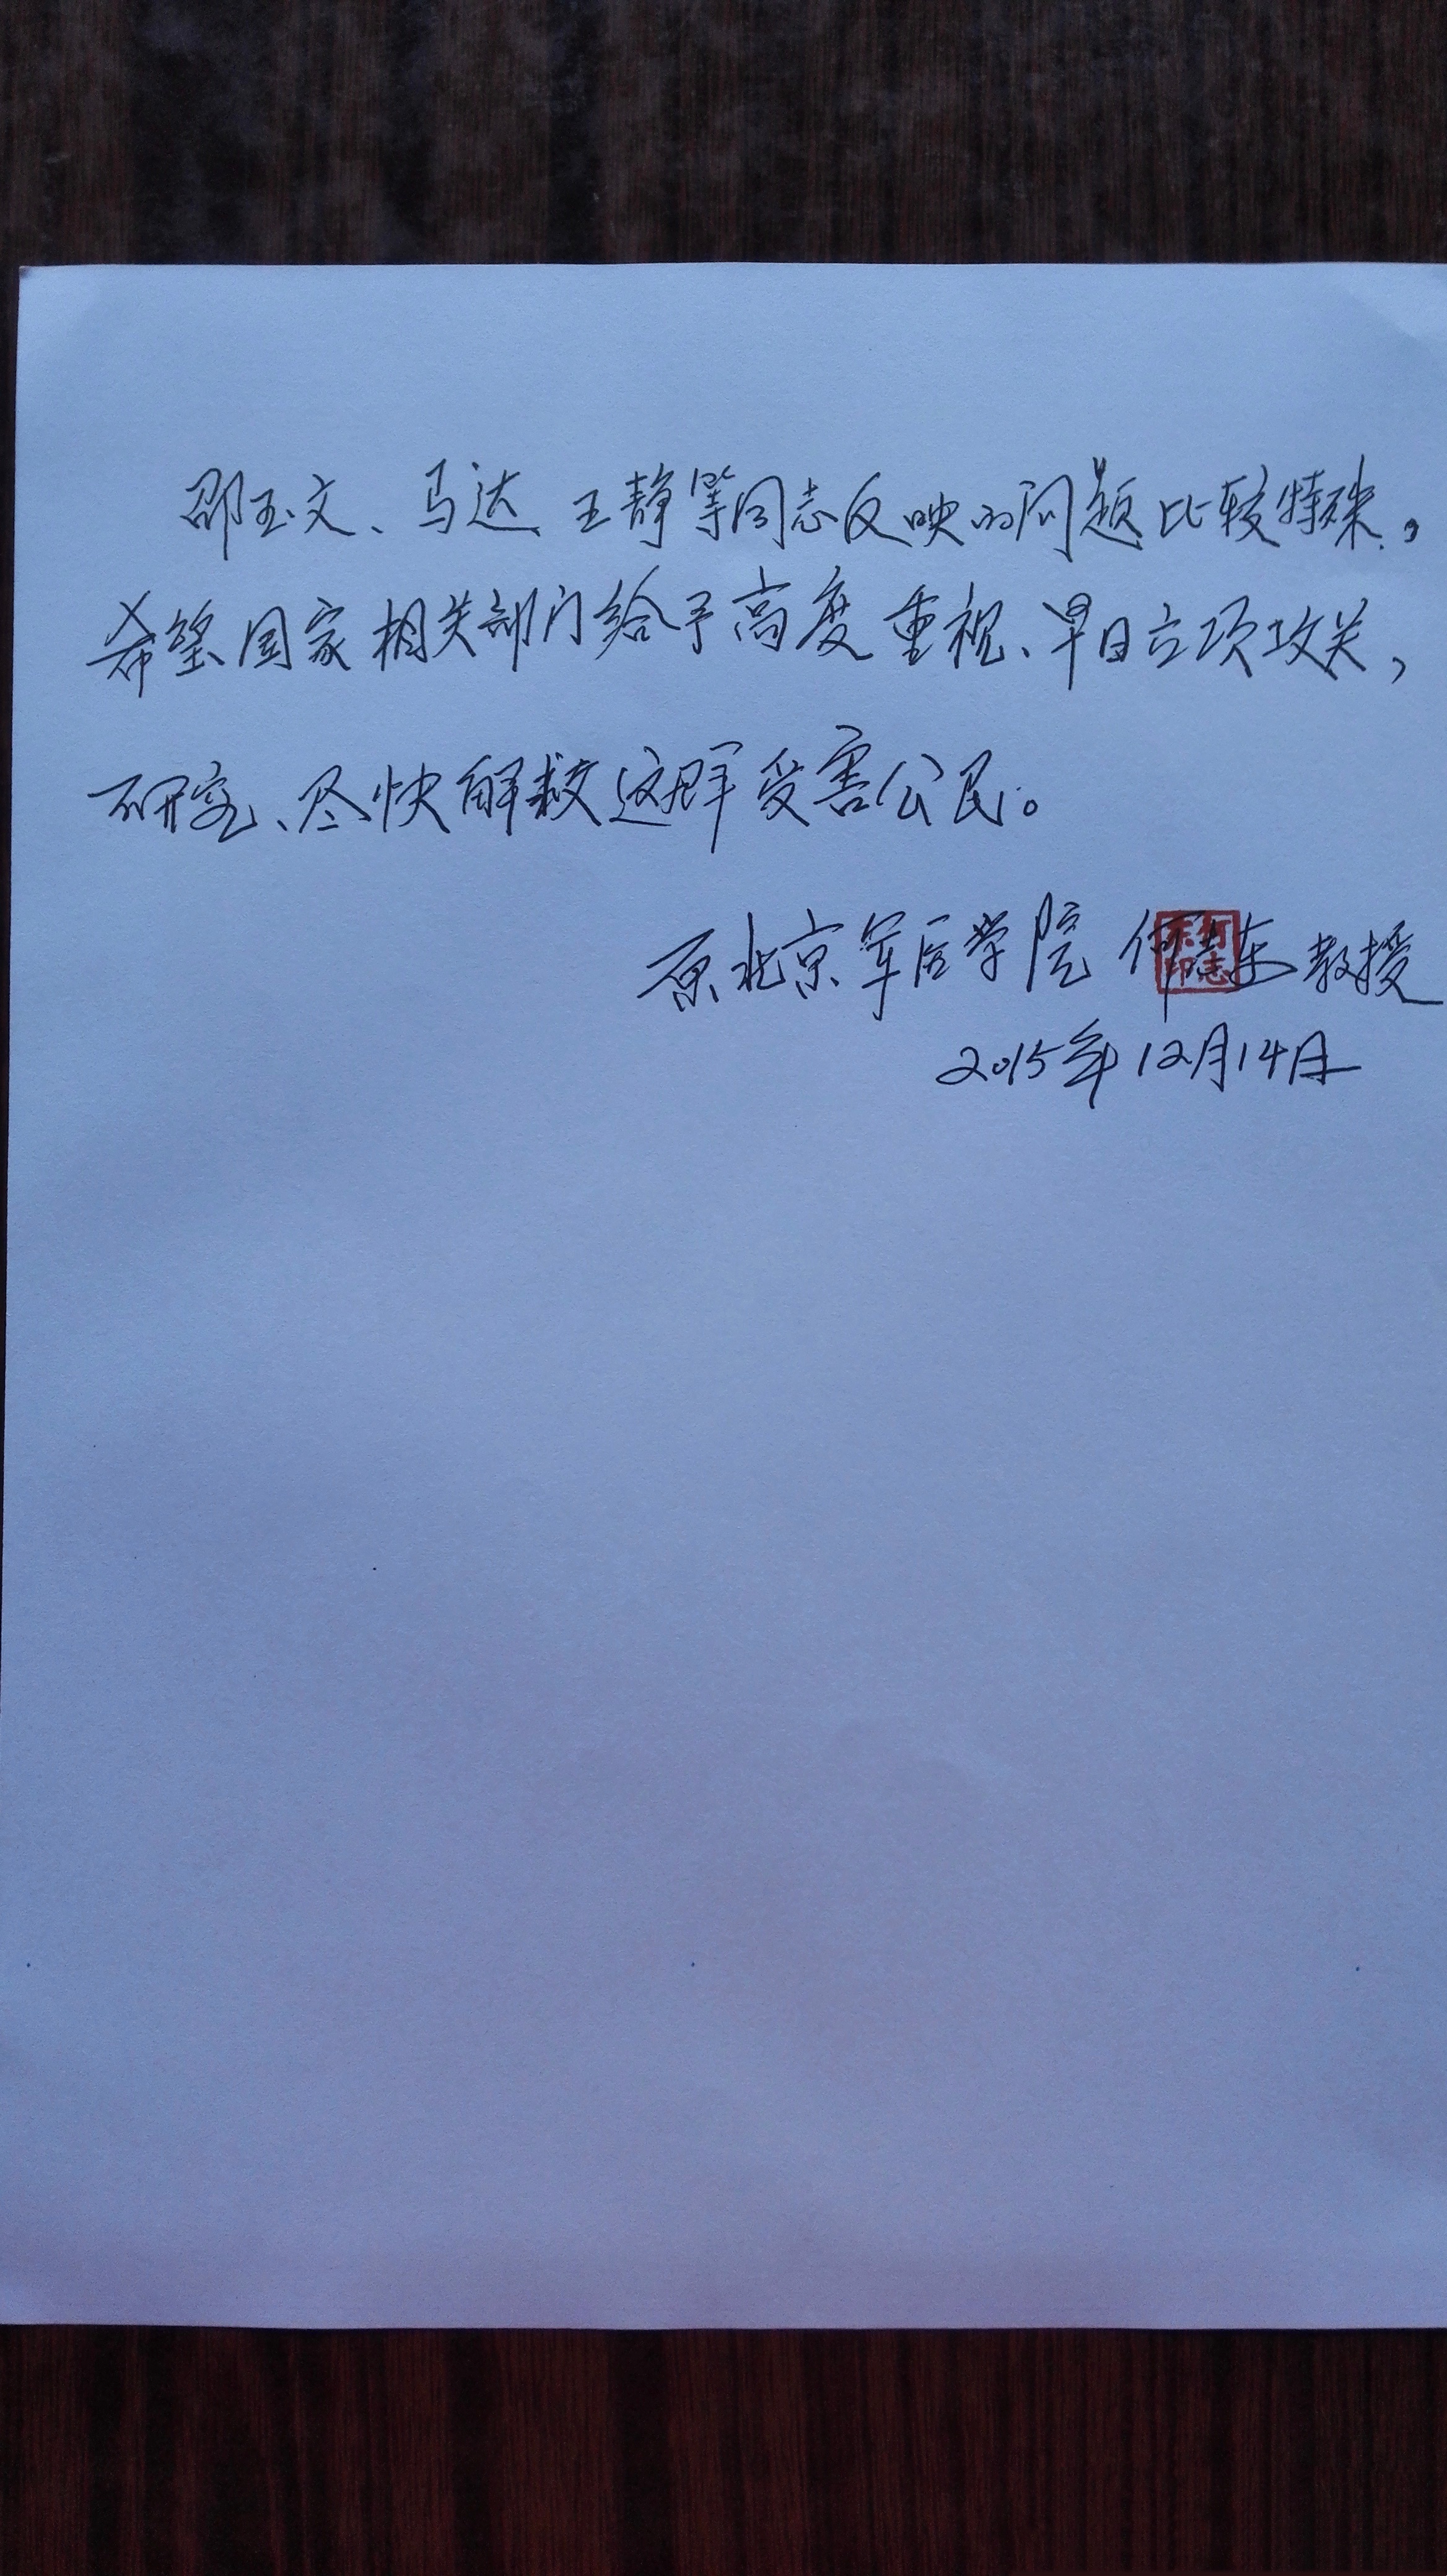 邵玉文、马达、王静等同志反映的问题比较特殊，
希望国家相关部门给予高度重视、早日立项攻关，
研究、尽快解救这群受害公民。
原北京军医学院 何志东 教授
何志东印
2015年12月14日